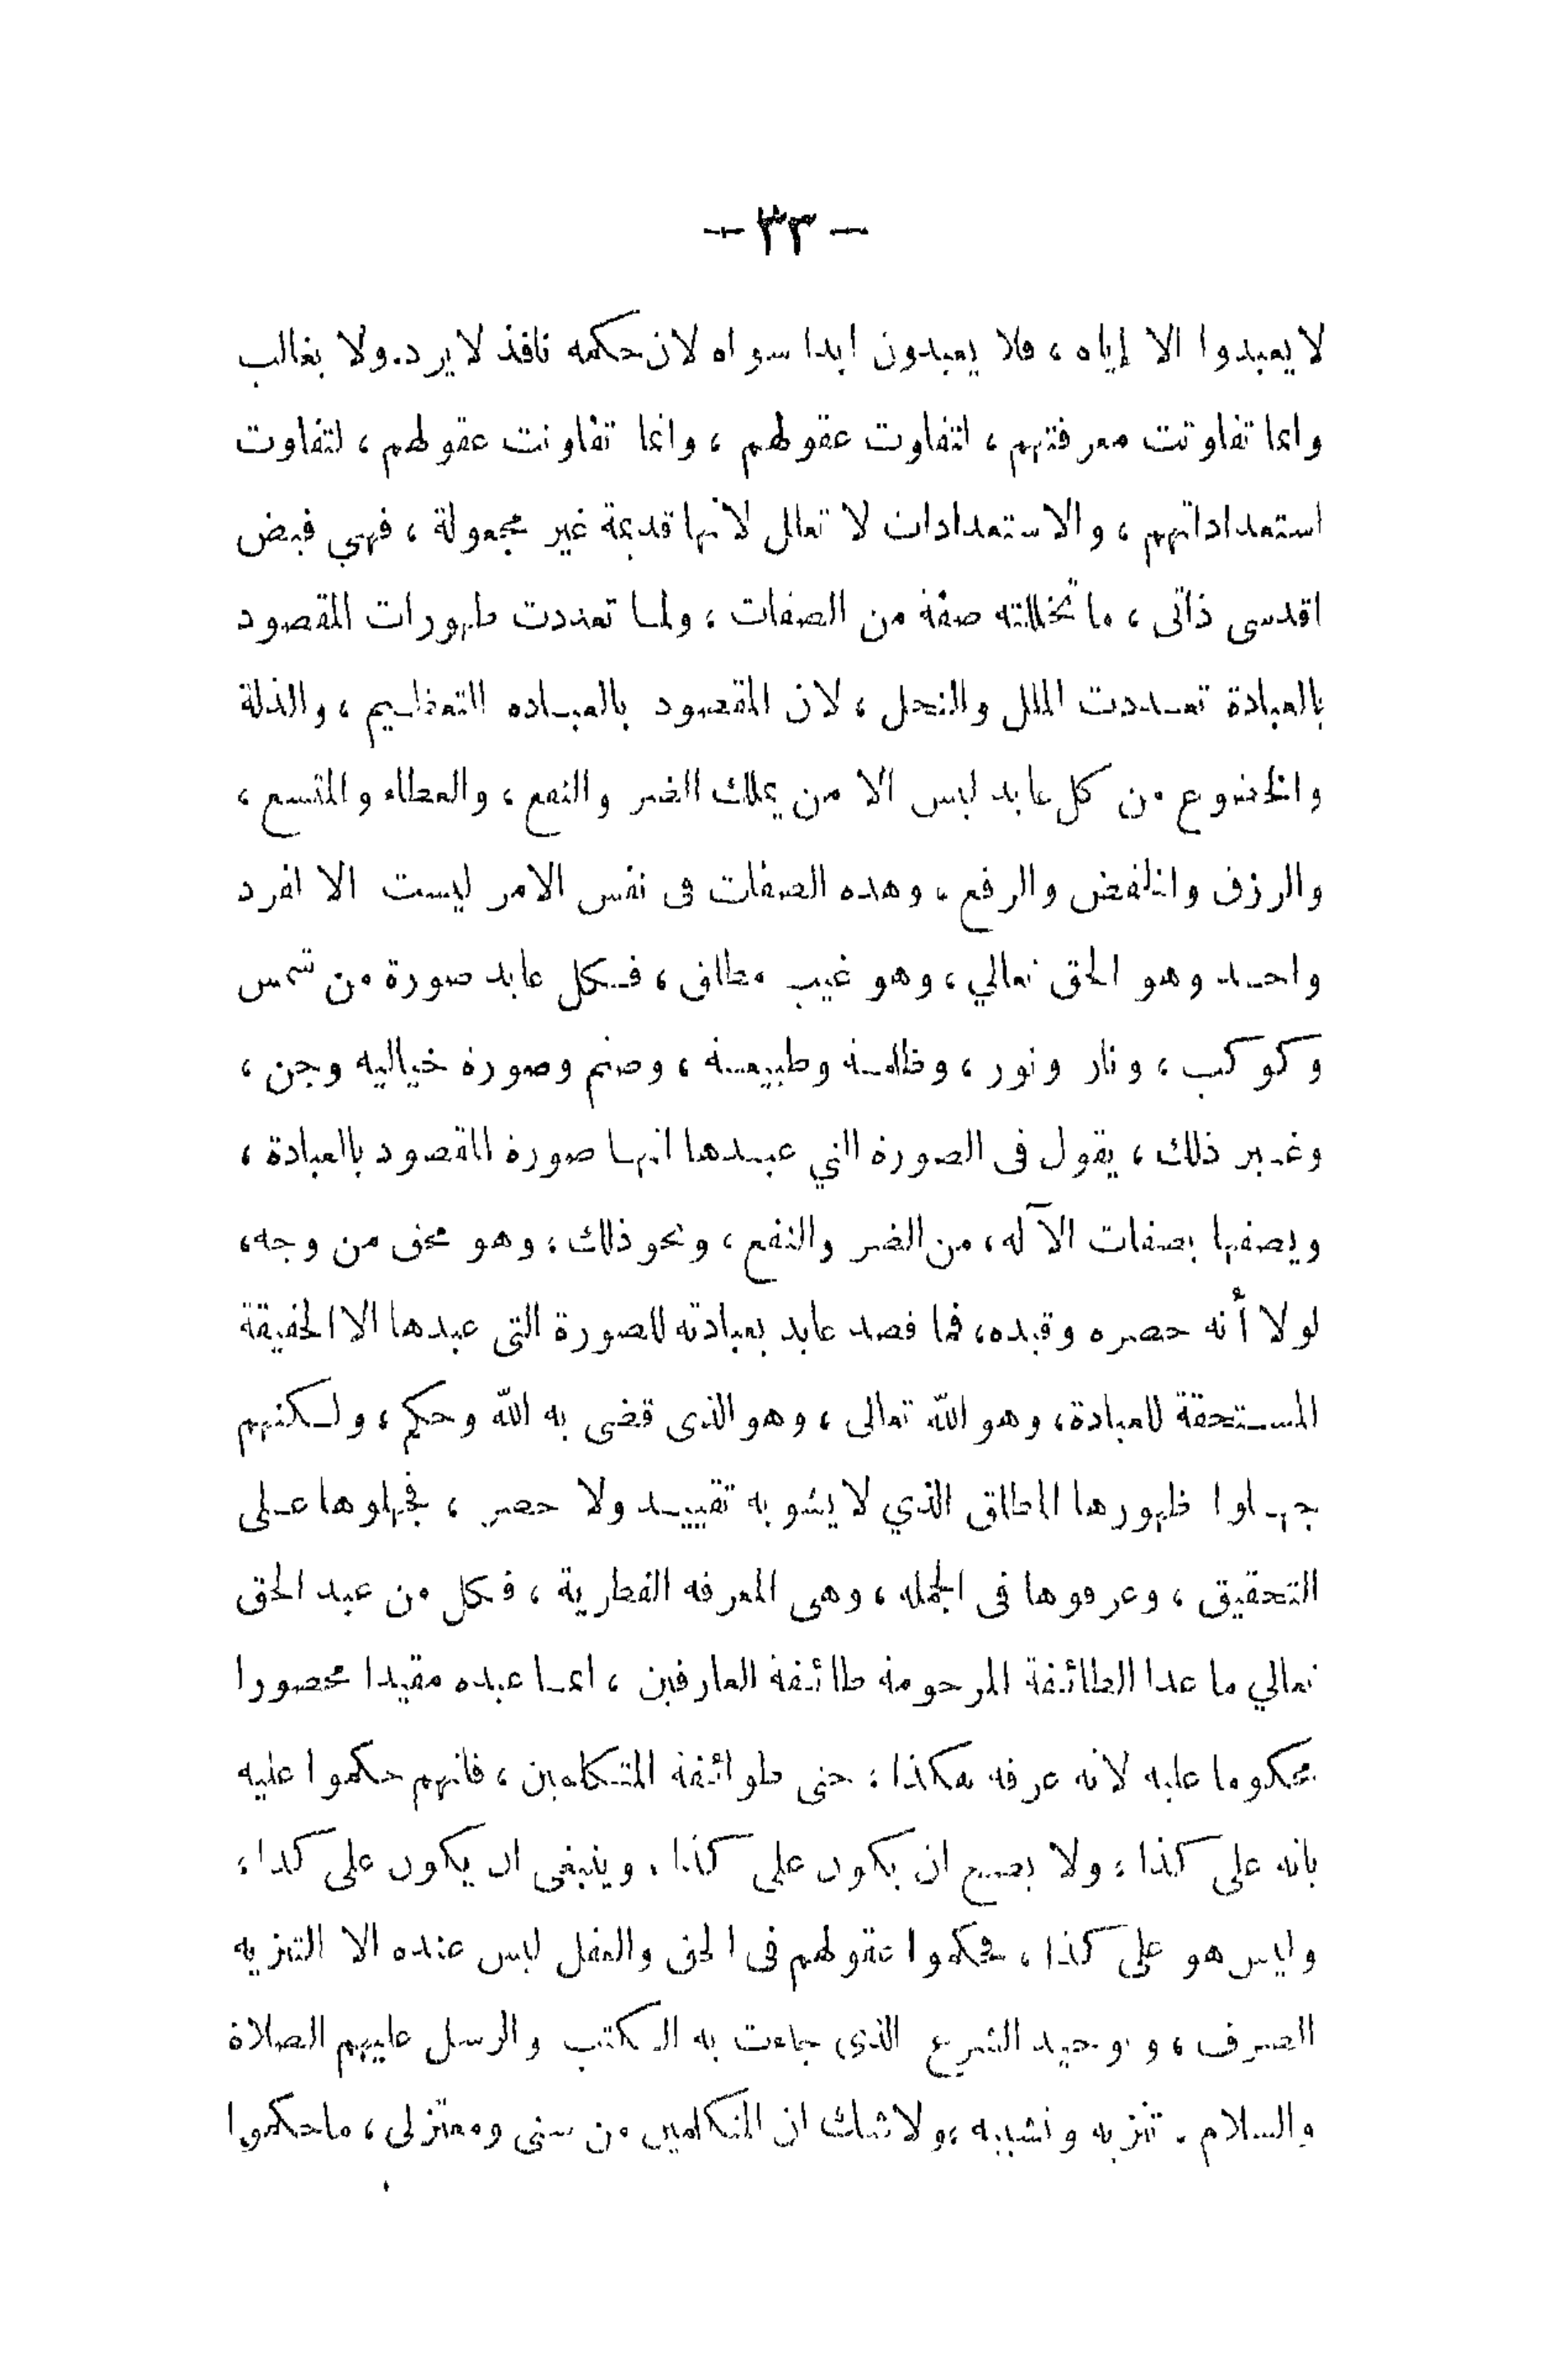 — ٣٣ —
لا يعبدوا الا إياه ، فلا يعبدون ابدا سواه لان حكمه نافذ لا يرد. ولا يغالب
وانما تفاوتت معرفتهم ، لتفاوت عقولهم ، وانما تفاوتت عقولهم ، لتفاوت
استعداداتهم ، والاستعدادات لا تعلل لانها قديمة غير مجعولة ، فهي فيض
اقدسى ذاتى ، ما تخللته صفة من الصفات ، ولما تعددت ظهورات المقصود
بالعبادة تعددت الملل والنحل ، لان المقصود بالعباده التعظيم ، والذلة
والخضوع من كل عابد ليس الا من يملك الضر والنفع ، والعطاء والمنع ،
والرزق والخفض والرفع ، وهذه الصفات فى نفس الامر ليست الا لفرد
واحد وهو الحق تعالي ، وهو غيب مطلق ، فكل عابد صورة من شمس
وكوكب ، ونار ونور ، وظلمة وطبيعة ، وصنم وصورة خياليه وجن ،
وغير ذلك ، يقول فى الصورة التي عبدها انها صورة المقصود بالعبادة ،
ويصفها بصفات الآله ، من الضر والنفع ، ونحو ذلك ، وهو محق من وجه ،
لولا أنه حصره وقيده ، فما قصد عابد بعبادته للصورة التى عبدها الا الحقيقة
المستحقة للعبادة ، وهو الله تعالى ، وهو الذى قضى به الله وحكم ، ولكنهم
جهلوا ظهورها المطلق الذي لا يشوبه تقييد ولا حصر ، فجهلوها على
التحقيق ، وعرفوها فى الجمله ، وهى المعرفه الفطرية ، فكل من عبد الحق
تعالي ما عدا الطائفة المرحومة طائفة العارفين ، انما عبده مقيدا محصورا
محكوما عليه لانه عرفه هكذا ، حتى طوائفة المتكلمين ، فانهم حكموا عليه
بانه على كذا ، ولا يصح ان يكون على كذا ، وينبغى ان يكون على كذا ،
وليس هو على كذا ، فحكموا عقولهم فى الحق والعقل ليس عنده الا التنزيه
الصرف ، وتوحيد الشرع الذى جاءت به الكتب والرسل عليهم الصلاة
والسلام . تنزيه وتشبيه ، ولا شك ان المتكلمين من سنى ومعتزلى ، ما حكموا